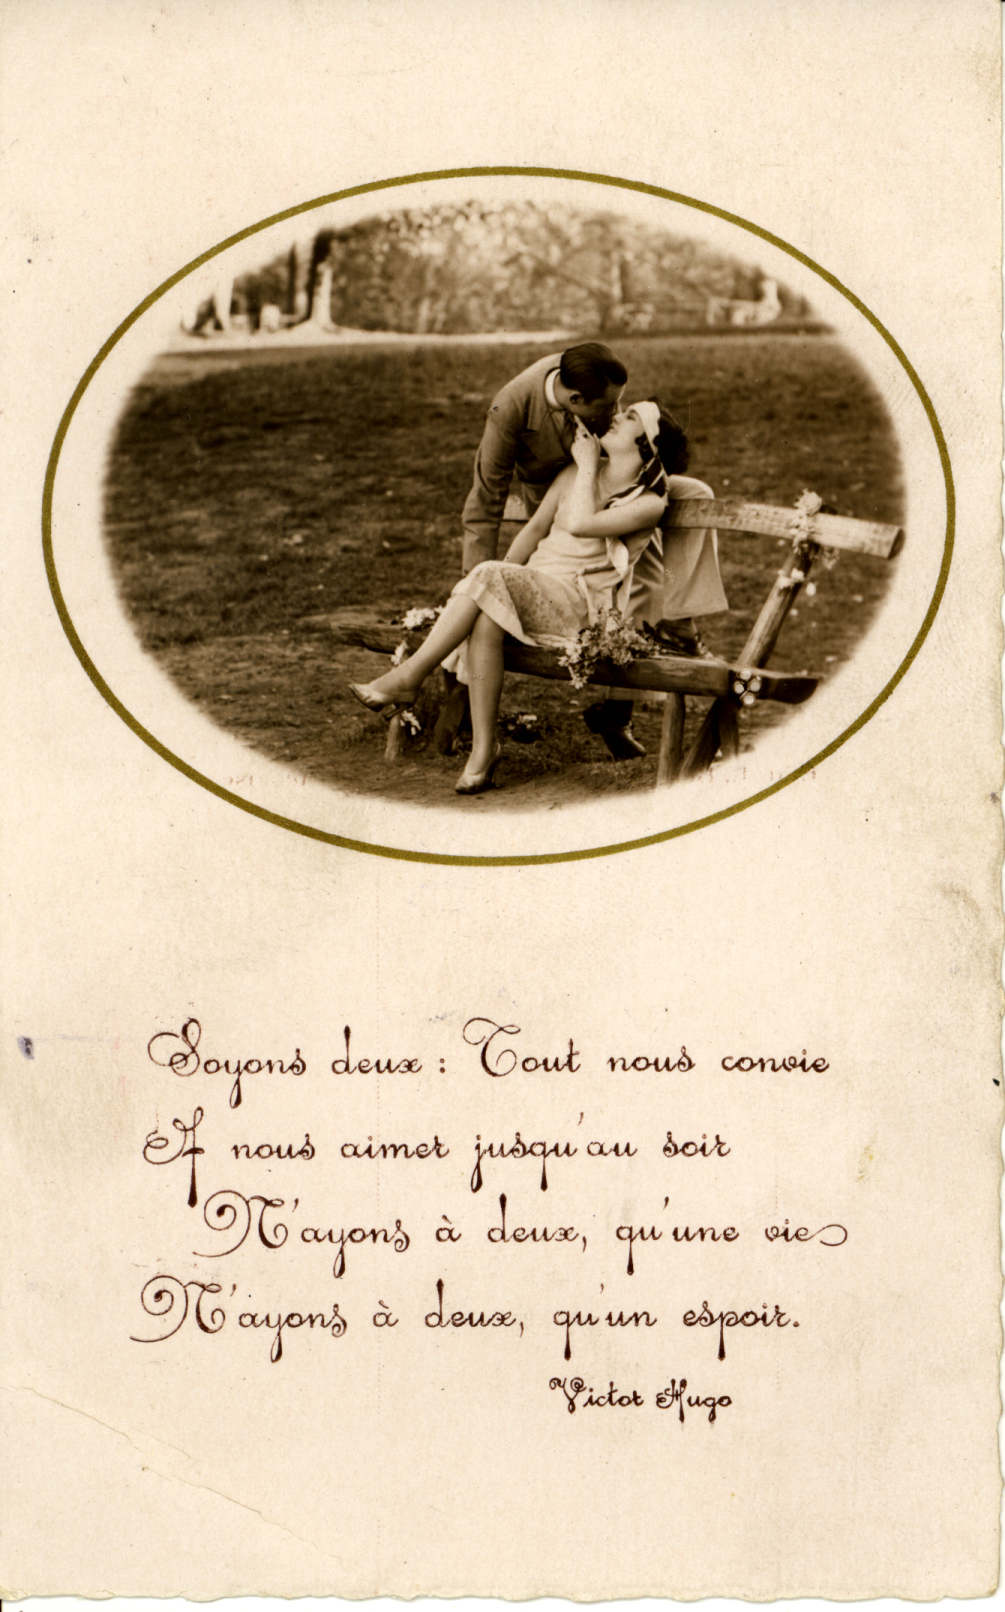 Soyons deux : Tout nous convie
A nous aimer jusqu'au soir
N'ayons à deux, qu'une vie
N'ayons à deux, qu'un espoir.
Victor Hugo